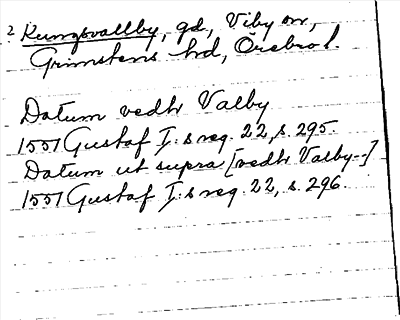 2 Kungsvallby, gd, Viby sn,
Grimstens hd, Örebro l.
Datum vedh Valby
1551 Gustaf I:s reg. 22, s. 295.
Datum ut supra [vedh Valby--]
1551 Gustaf I:s reg. 22, s. 296.